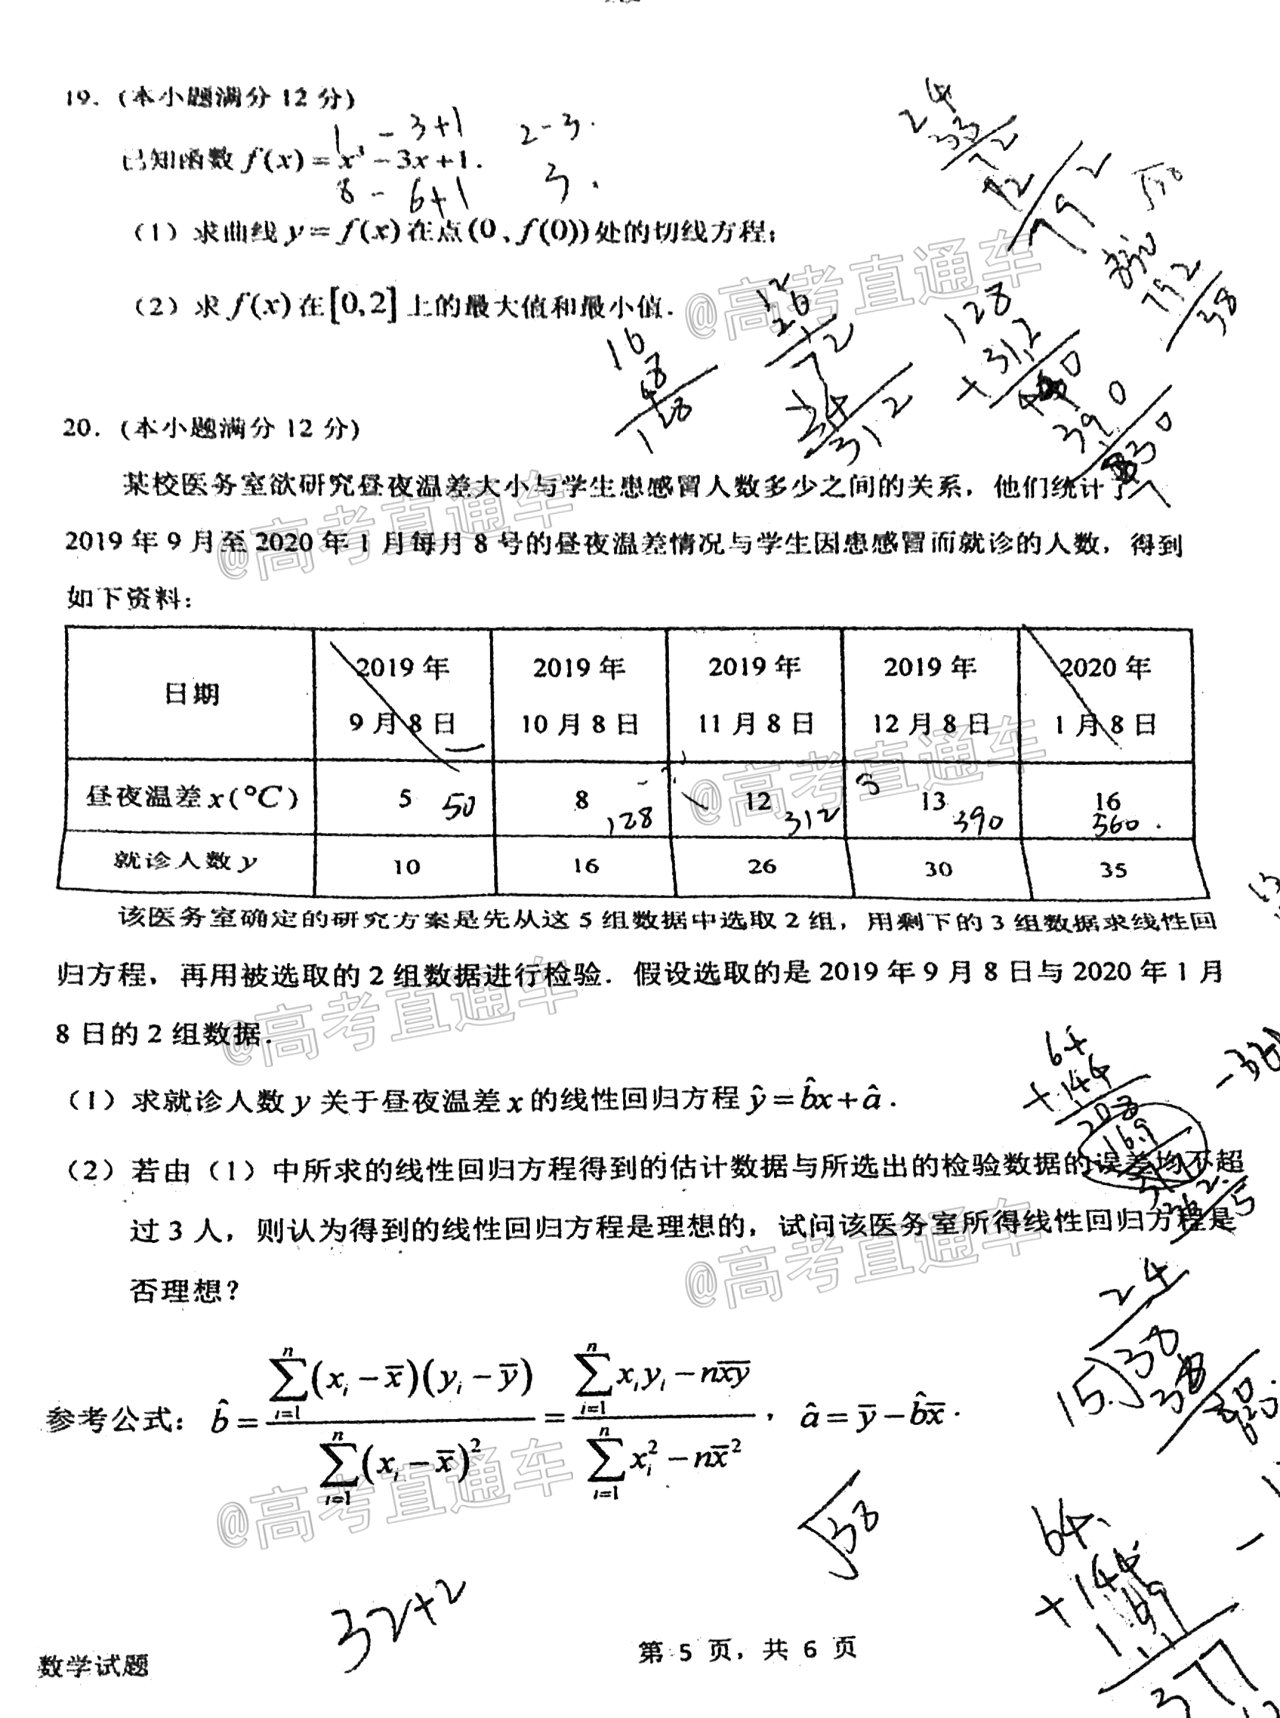 19. (本小题满分 12 分)
1 - 3+1 2-3.
已知函数 f(x) = x³ - 3x + 1.
8 - 6+1 3.
(1) 求曲线 y = f(x) 在点 (0, f(0)) 处的切线方程;
(2) 求 f(x) 在 [0,2] 上的最大值和最小值.
20. (本小题满分 12 分)
某校医务室欲研究昼夜温差大小与学生患感冒人数多少之间的关系, 他们统计了
2019 年 9 月至 2020 年 1 月每月 8 号的昼夜温差情况与学生因患感冒而就诊的人数, 得到
如下资料:
日期 2019 年 9 月 8 日 2019 年 10 月 8 日 2019 年 11 月 8 日 2019 年 12 月 8 日 2020 年 1 月 8 日
昼夜温差 x(°C) 5 8 12 13 16
50 128 312 390 560.
就诊人数 y 10 16 26 30 35
该医务室确定的研究方案是先从这 5 组数据中选取 2 组, 用剩下的 3 组数据求线性回
归方程, 再用被选取的 2 组数据进行检验. 假设选取的是 2019 年 9 月 8 日与 2020 年 1 月
8 日的 2 组数据.
(1) 求就诊人数 y 关于昼夜温差 x 的线性回归方程 ŷ = b̂x + â.
(2) 若由 (1) 中所求的线性回归方程得到的估计数据与所选出的检验数据的误差均不超
过 3 人, 则认为得到的线性回归方程是理想的, 试问该医务室所得线性回归方程是
否理想?
参考公式: b̂ = ∑ⁿᵢ₌₁(xᵢ - x̄)(yᵢ - ȳ) / ∑ⁿᵢ₌₁(xᵢ - x̄)² = (∑ⁿᵢ₌₁xᵢyᵢ - nx̄ȳ) / (∑ⁿᵢ₌₁xᵢ² - nx̄²), â = ȳ - b̂x̄.
32+2
数学试题
第 5 页, 共 6 页
@高考直通车
@高考直通车
@高考直通车
@高考直通车
@高考直通车
@高考直通车